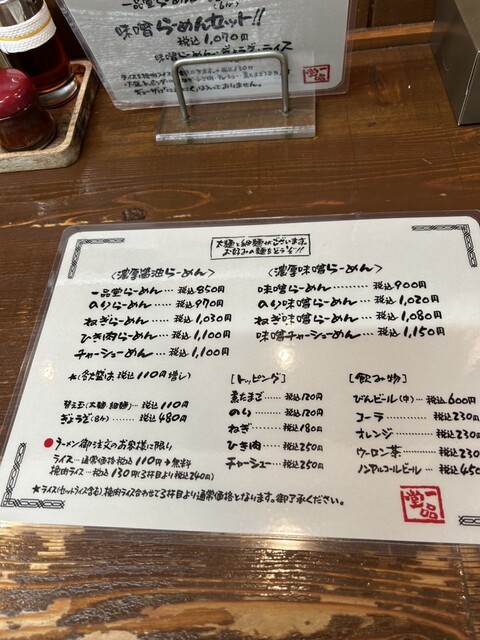 一品堂らーめん
味噌らーめんセット!!
税込1,070円
太麺と細麺がございます。
お好みの麺をどうぞ!!
〈濃厚醤油らーめん〉
一品堂らーめん… 税込850円
のりらーめん…… 税込970円
ねぎらーめん…… 税込1,030円
ひき肉らーめん… 税込1,100円
チャーシューめん… 税込1,100円
〈濃厚味噌らーめん〉
味噌らーめん……… 税込900円
のり味噌らーめん… 税込1,020円
ねぎ味噌らーめん… 税込1,080円
味噌チャーシューめん… 税込1,150円
*(各大盛は 税込110円増し)
替え玉(太麺・細麺)… 税込110円
ぎょうざ(6ヶ)…… 税込480円
●ラーメン御注文のお客様に限り
ライス…通常価格税込110円→無料
挽肉ライス…税込130円(3杯目より税込240円)
[トッピング]
煮たまご…… 税込120円
のり……… 税込120円
ねぎ……… 税込180円
ひき肉…… 税込250円
チャーシュー… 税込250円
[飲み物]
びんビール(中)… 税込600円
コーラ……… 税込230円
オレンジ…… 税込230円
ウーロン茶… 税込230円
ノンアルコールビール… 税込450
★ライス(セットライス含む)、挽肉ライス合わせて3杯目より通常価格となります。御了承ください。
一品堂